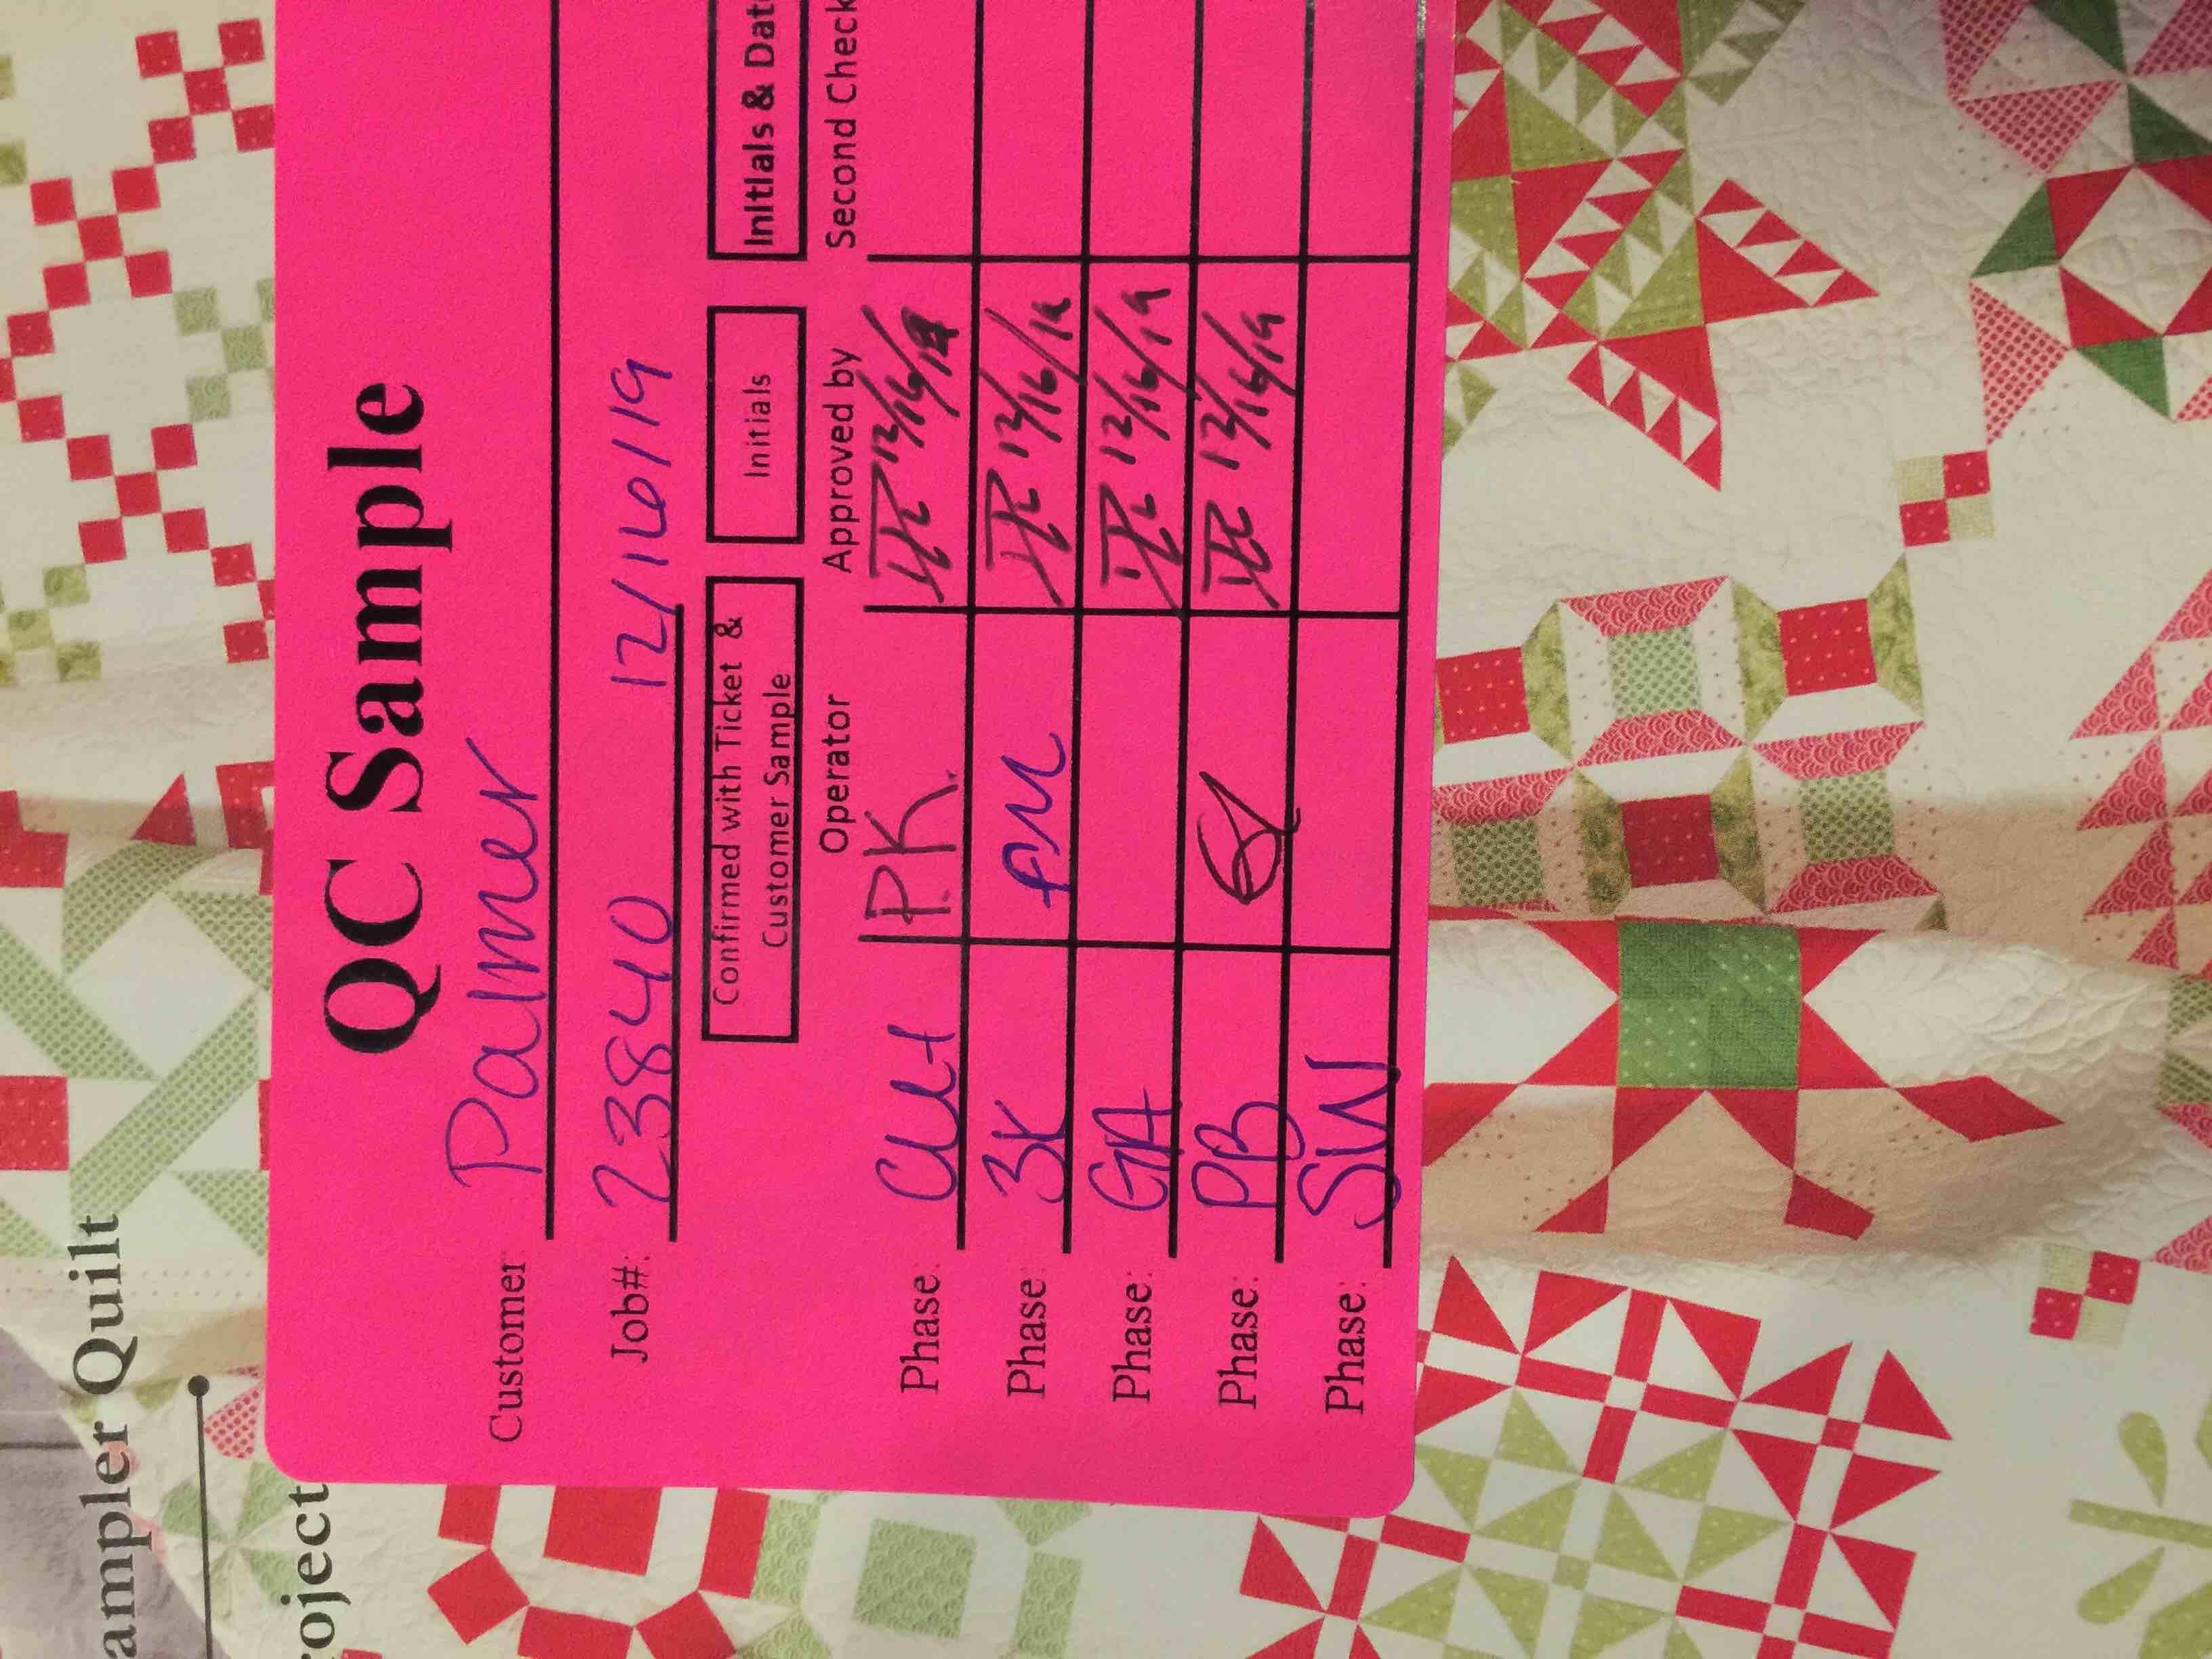 ampler Quilt
roject
QC Sample
Customer: Palmer
Job#: 23840 12/16/19
Confirmed with Ticket &
Customer Sample
Initials
Initials & Dat
Operator Approved by Second Check
Phase: Cut PK 12/16/19
Phase: 3K PM 12/16/19
Phase: GA 12/16/19
Phase: PB 12/16/19
Phase: SW